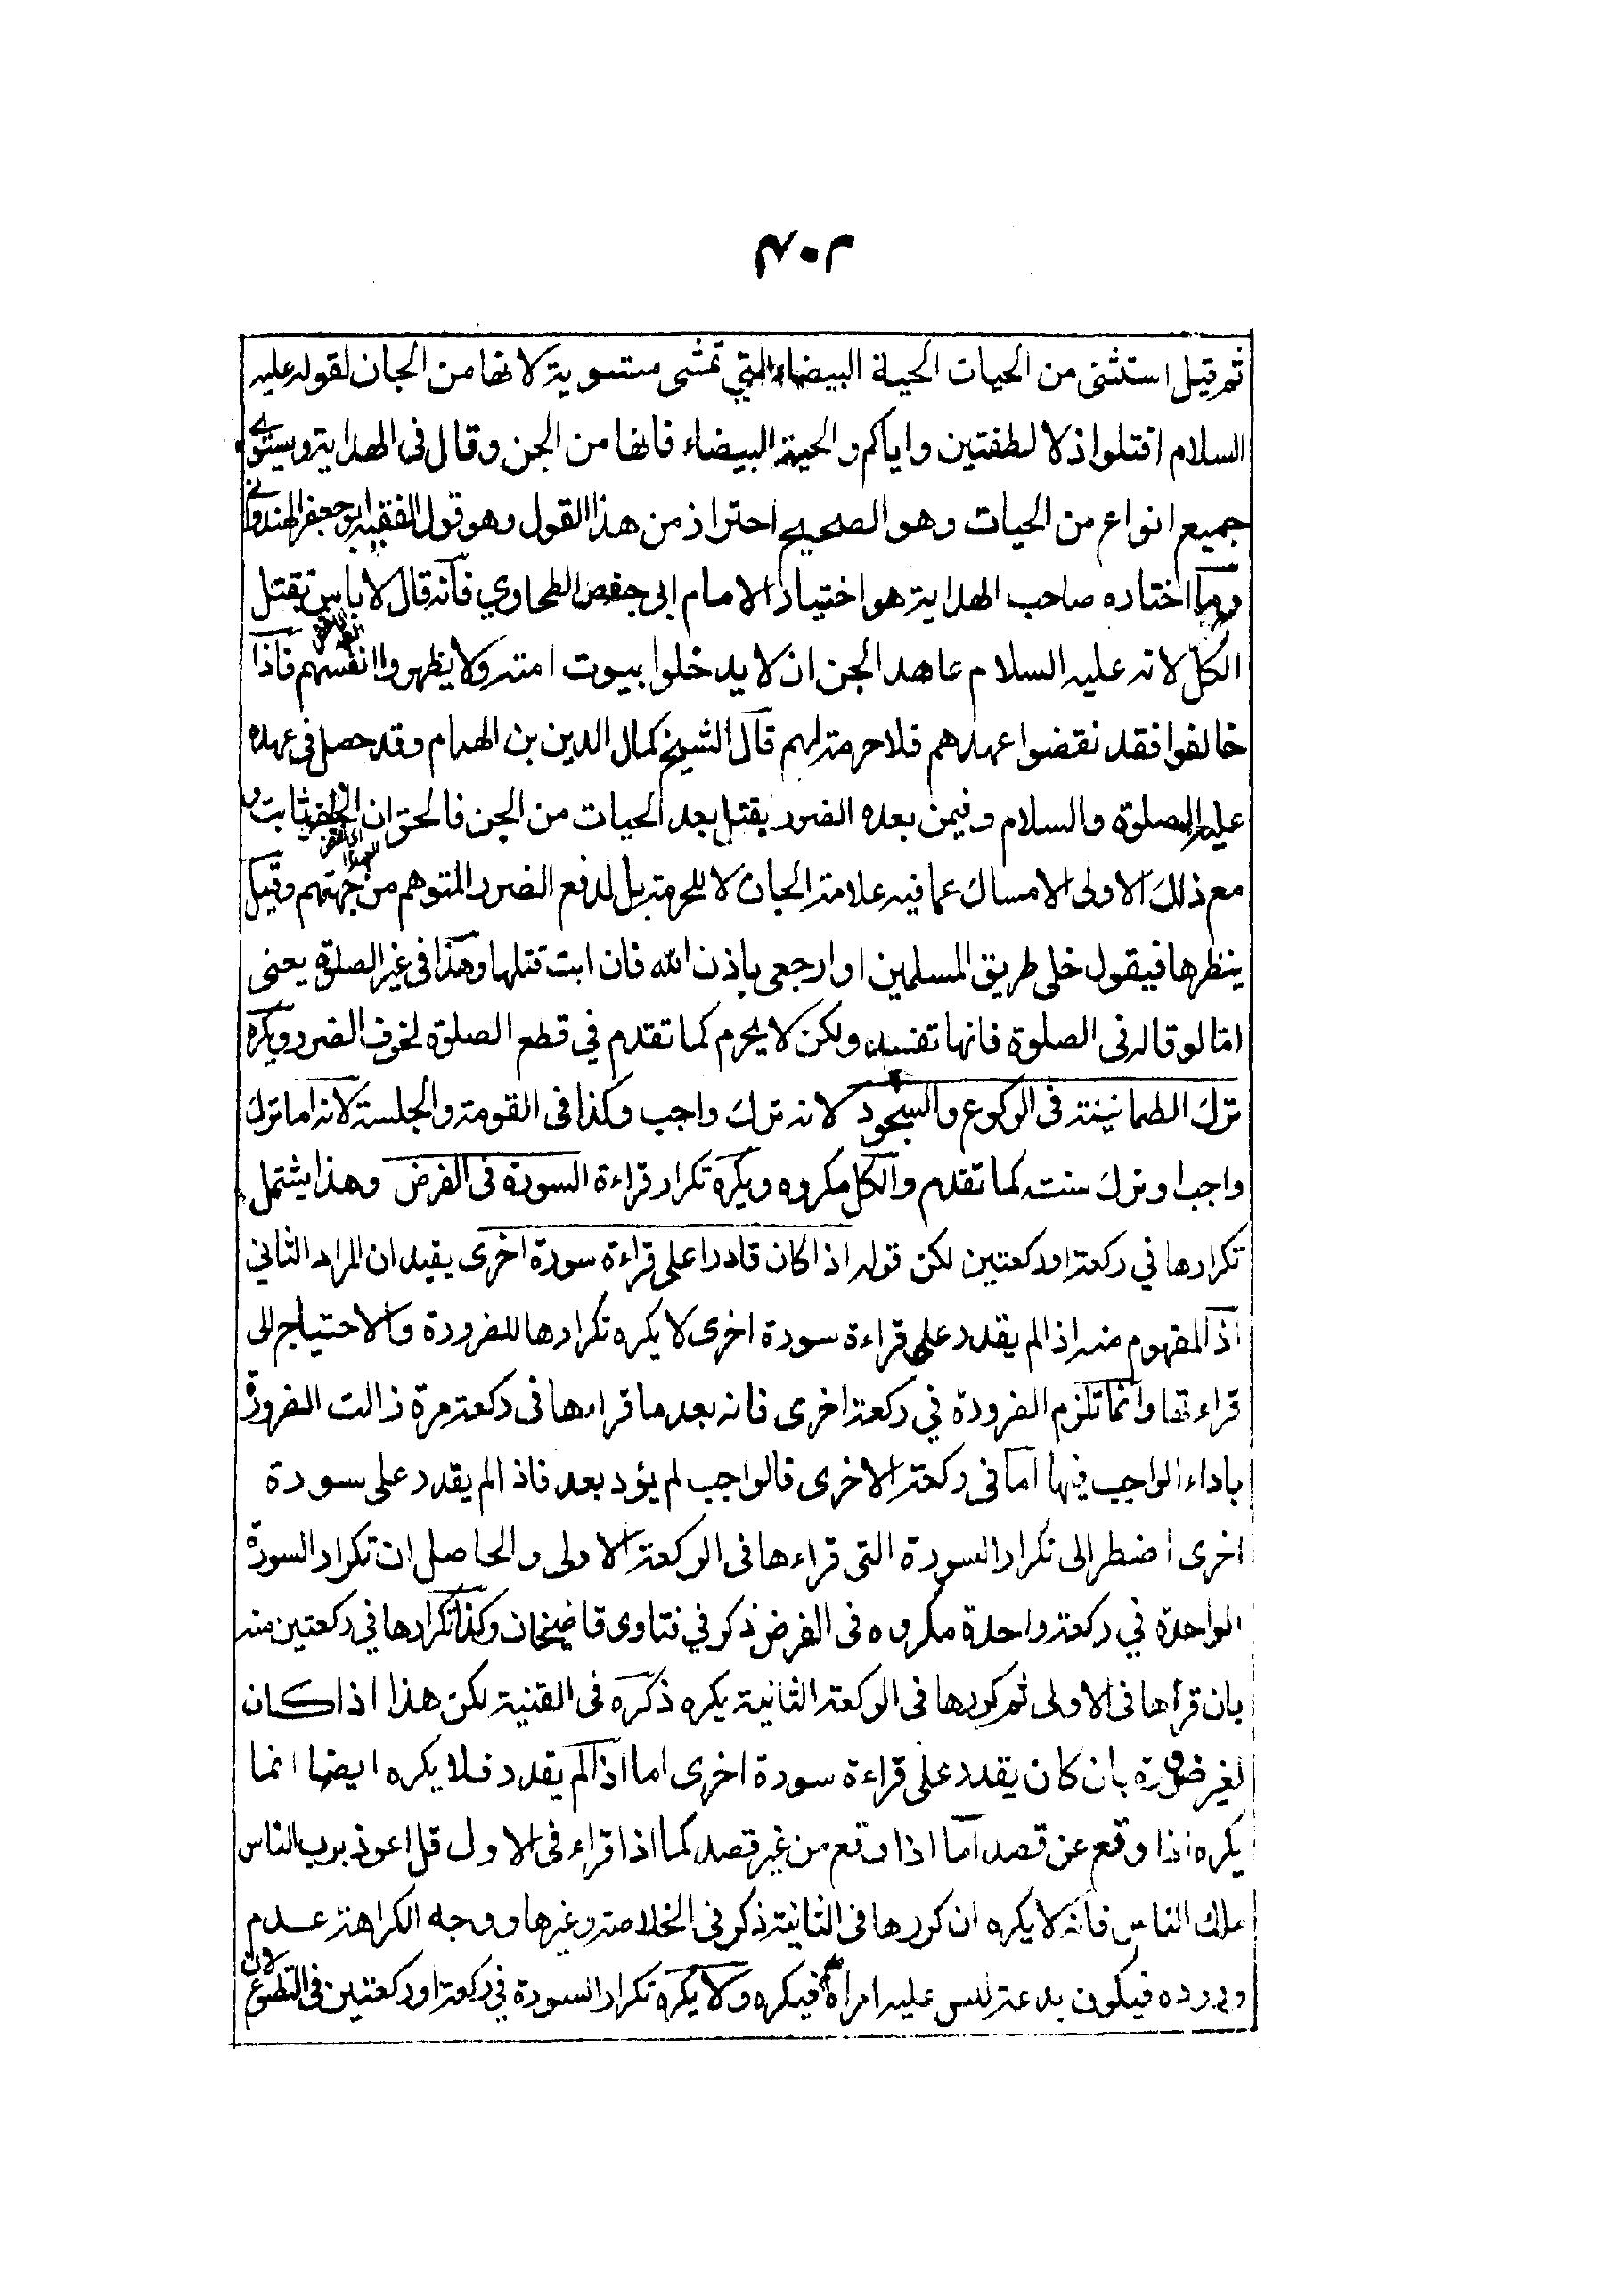 ٣٥٢
ثم قيل استثنى من الحيات الحية البيضاء التي تمشى مستوية لانها من الجان لقوله عليه
السلام اقتلوا ذلا لطفتين واياكم والحية البيضاء فانها من الجن وقال فى الهداية ويستوى
جميع انواع من الحيات وهو الصحيح احتراز من هذا القول وهو قول الفقيه ابو جعفر الهندوانى
وما اختاره صاحب الهداية هو اختيار الامام ابى جعفر الطحاوي فانه قال لا باس بقتل
الكل لانه عليه السلام عاهد الجن ان لا يدخلوا بيوت امته ولا يظهروا انفسهم فاذا
خالفوا فقد نقضوا عهدهم فلا حرمة لهم قال الشيخ كمال الدين بن الهمام وقد حصل فى عهده
عليه الصلوة والسلام وفيمن بعده الضرر بقتل بعد الحيات من الجن فالحق ان الحل ثابت و
مع ذلك الاولى الامساك عما فيه علامة الجان لا للحرمة بل لدفع الضرر المتوهم من جهتهم وقيل
ينظرها فيقول خلى طريق المسلمين او ارجعى باذن الله فان ابت قتلها وهذا فى غير الصلوة يعنى
امّا لو قاله فى الصلوة فانها تفسد ولكن لا يحرم كما تقدم في قطع الصلوة لخوف الضرر ويكره
ترك الطمانينة فى الركوع والسجود لانه ترك واجب وكذا فى القومة والجلسة لانه اما ترك
واجب او ترك سنة كما تقدم والكل مكروه ويكره تكرار قراءة السورة فى الفرض وهذا يشتمل
تكرارها في ركعة او ركعتين لكن قوله اذا كان قادرا على قراءة سورة اخرى يفيد ان المراد الثاني
اذ المفهوم منه اذا لم يقدر على قراءة سورة اخرى لا يكره تكرارها للضرورة والاحتياج الى
قراءتها وانما تلزم الضرورة في ركعة اخرى فانه بعد ما قراءها فى ركعة مرة زالت الضرورة
باداء الواجب فيها اما فى ركعة الاخرى فالواجب لم يؤد بعد فاذا لم يقدر على سورة
اخرى اضطر الى تكرار السورة التى قراءها فى الركعة الاولى والحاصل ان تكرار السورة
الواحدة في ركعة واحدة مكروه فى الفرض ذكر في فتاوى قاضيخان وكذا تكرارها في ركعتين منه
بان قرأها فى الاولى ثم كررها فى الركعة الثانية يكره ذكره فى القنية لكن هذا اذا كان
لغير ضرورة بان كان يقدر على قراءة سورة اخرى اما اذا لم يقدر فلا يكره ايضا انما
يكره اذا وقع عن قصد اما اذا وقع من غير قصد كما اذا قراء فى الاول قل اعوذ برب الناس
ملك الناس فانه لا يكره ان كررها فى الثانية ذكر فى الخلاصة وغيرها ووجه الكراهة عدم
وروده فيكون بدعة ليس عليه امراة فيكره ولا يكره تكرار السورة في ركعة او ركعتين فى التطوع لان